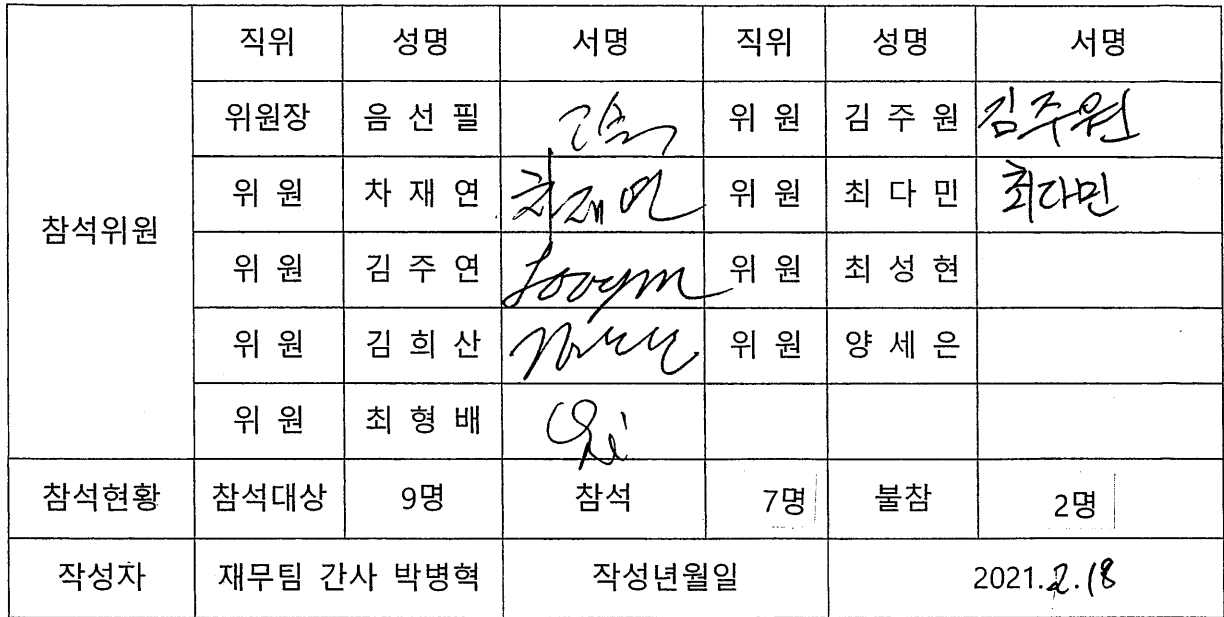 직위 성명 서명 직위 성명 서명
위원장 음 선 필 위 원 김 주 원 김주원
참석위원 위 원 차 재 연 차재연 위 원 최 다 민 최다민
위 원 김 주 연 위 원 최 성 현
위 원 김 희 산 위 원 양 세 은
위 원 최 형 배
참석현황 참석대상 9명 참석 7명 불참 2명
작성자 재무팀 간사 박병혁 작성년월일 2021.2.18